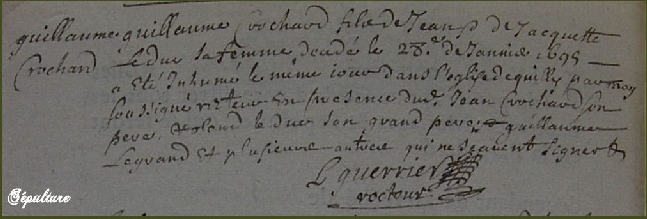 guillaume guillaume Crochard fils de Jean & de Jacquette
Crochard le duc sa femme decedé le 28e de Janvier 1695
a eté Inhumé le même iour dans l'eglise de quilly par moy
soussigné recteur En presence dud. Jean Crochard son
pere, le duc son grand pere guillaume
Legrand et plusieurs autres qui ne scavent signer
L guerrier
recteur
Sépulture